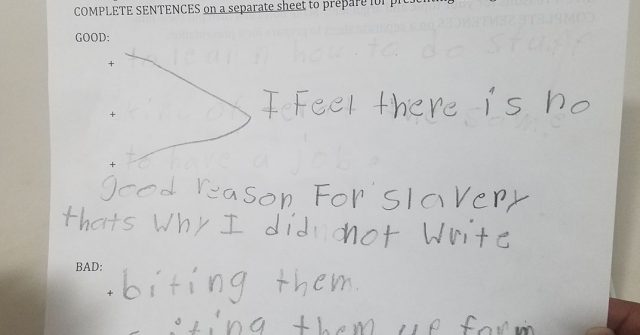 COMPLETE SENTENCES on a separate sheet to prepare for
GOOD:
+
+ I Feel there is no
+
good reason For slavery
thats why I did not write
BAD:
+ biting them.